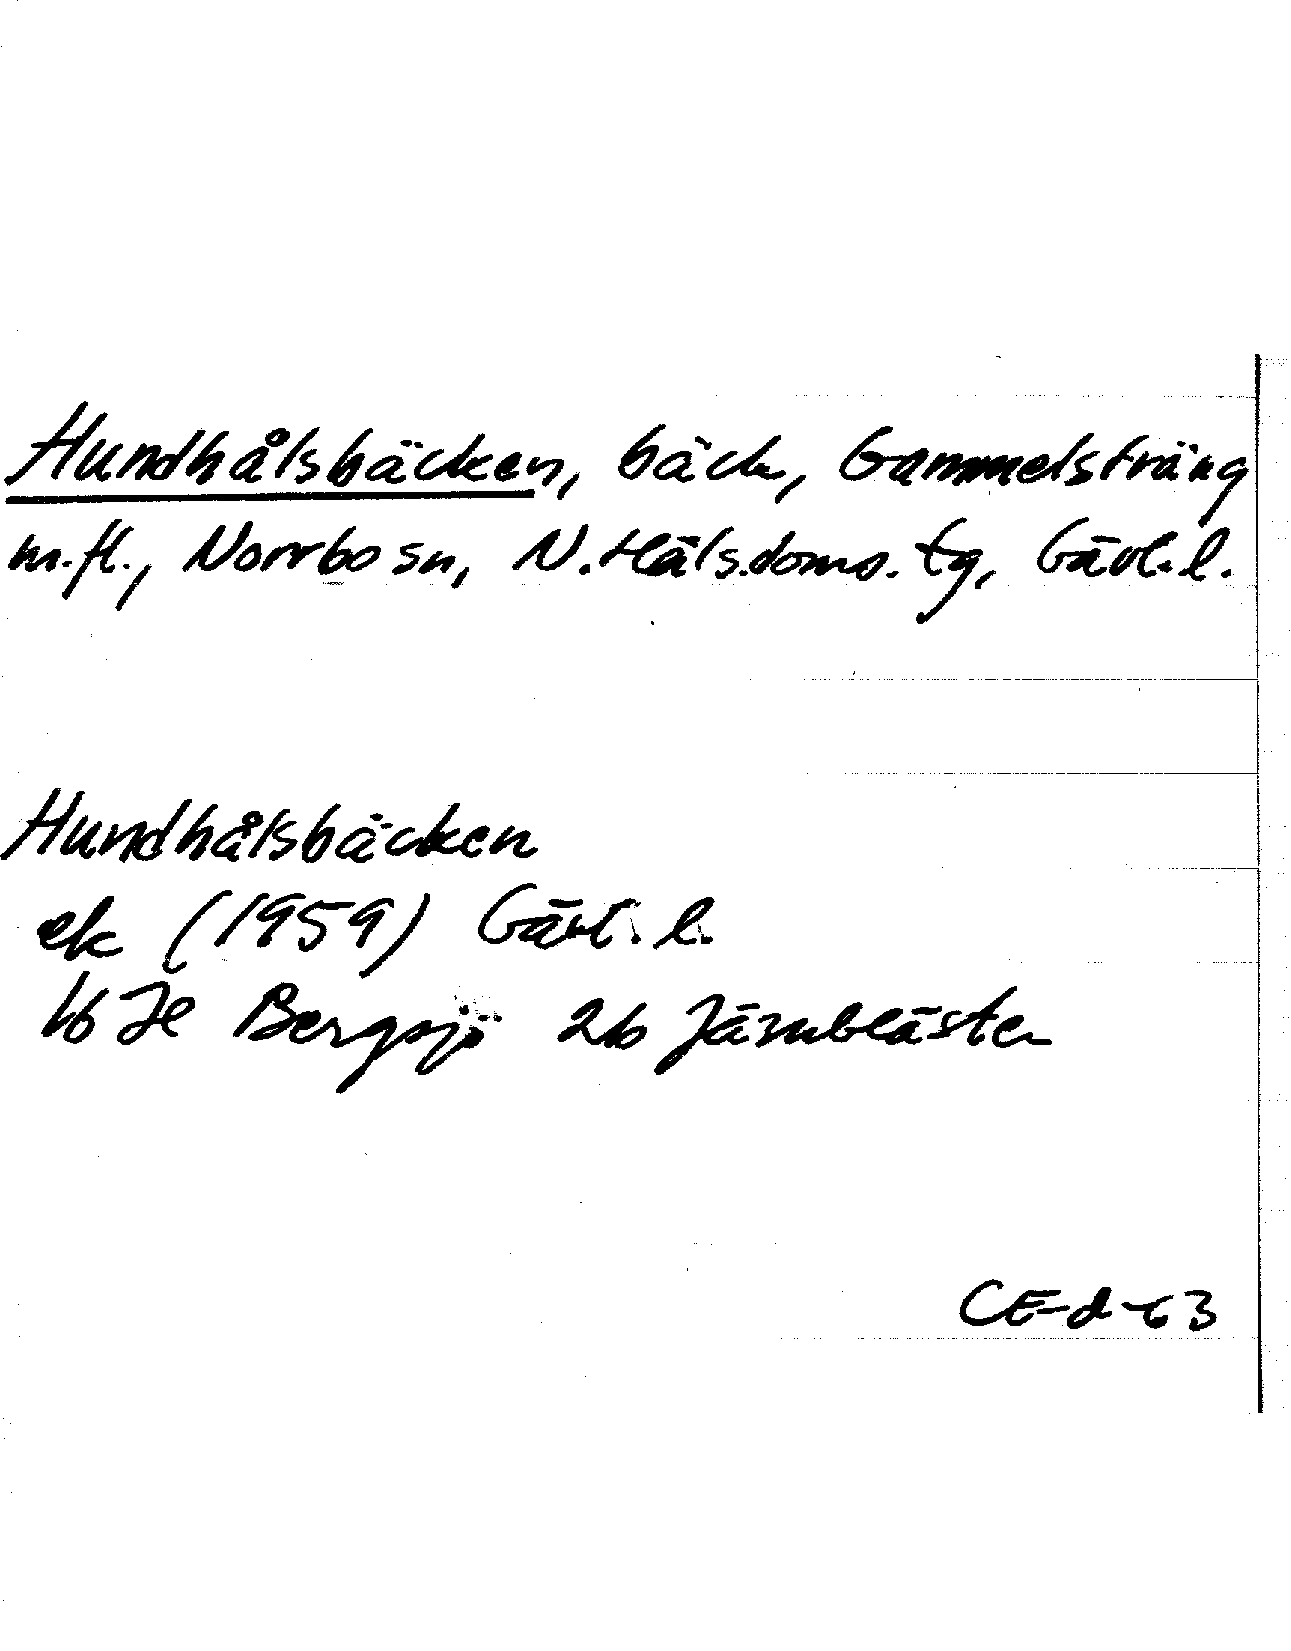 Hundhålsbäcken, bäck, Gammelsträng
m.fl., Norrbo sn, N. Häls.doms. tg, Gävl. l.
Hundhålsbäcken
ek (1959) Gävl. l.
16 H Bergsjö 2b Järnblästen
CE-d-63